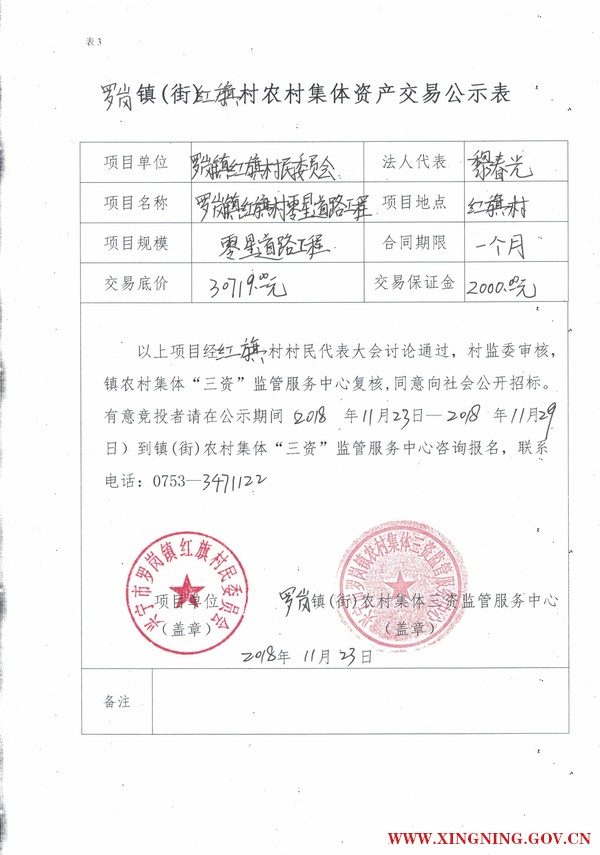 表3
罗岗镇(街)红旗村农村集体资产交易公示表
项目单位 罗岗镇红旗村民委员会 法人代表 黎春光
项目名称 罗岗镇红旗村零星道路工程 项目地点 红旗村
项目规模 零星道路工程 合同期限 一个月
交易底价 30719.00元 交易保证金 2000.00元
以上项目经红旗村村民代表大会讨论通过，村监委审核，
镇农村集体“三资”监管服务中心复核,同意向社会公开招标。
有意竞投者请在公示期间（2018 年11月23日—2018 年11月29
日）到镇(街)农村集体“三资”监管服务中心咨询报名，联系
电话：0753—3471122
兴宁市罗岗镇红旗村民委员会
兴宁市罗岗镇农村集体三资监管服务中心
项目单位 罗岗镇(街)农村集体三资监管服务中心
（盖章） （盖章）
2018年 11月 23日
备注
WWW.XINGNING.GOV.CN